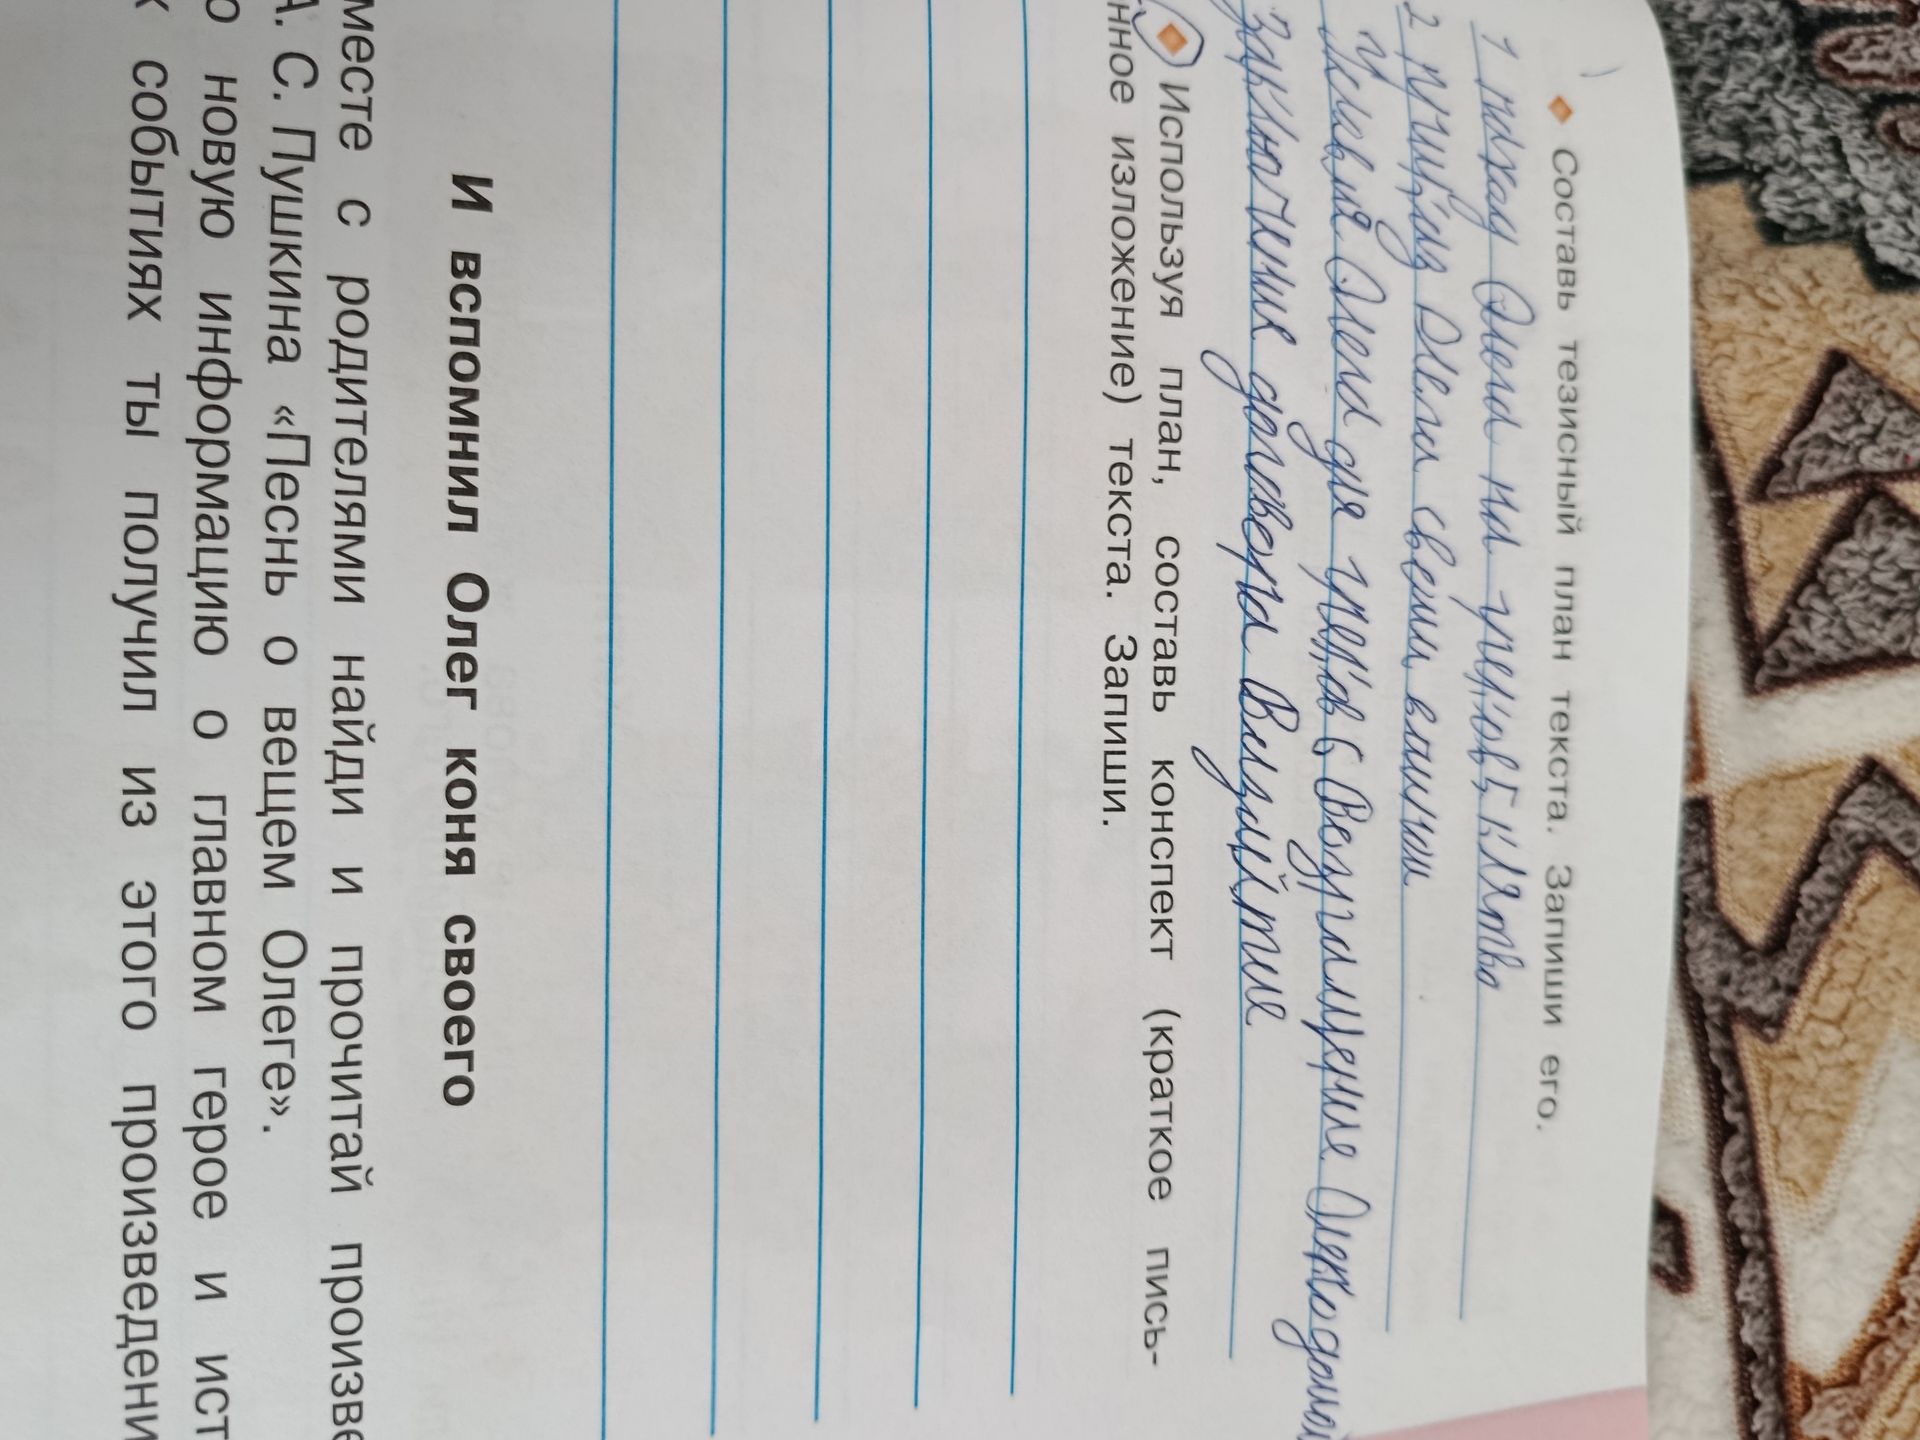 Составь тезисный план текста. Запиши его.
1 поход Олега на греков, клятва
2 приход Олега с воинами
Условия Олега для греков 6 Возвращение Олега домой
Заключение договора Византие
Используя план, составь конспект (краткое пись-
нное изложение) текста. Запиши.
И вспомнил Олег коня своего
месте с родителями найди и прочитай произве
А. С. Пушкина «Песнь о вещем Олеге».
о новую информацию о главном герое и ист
х событиях ты получил из этого произведени